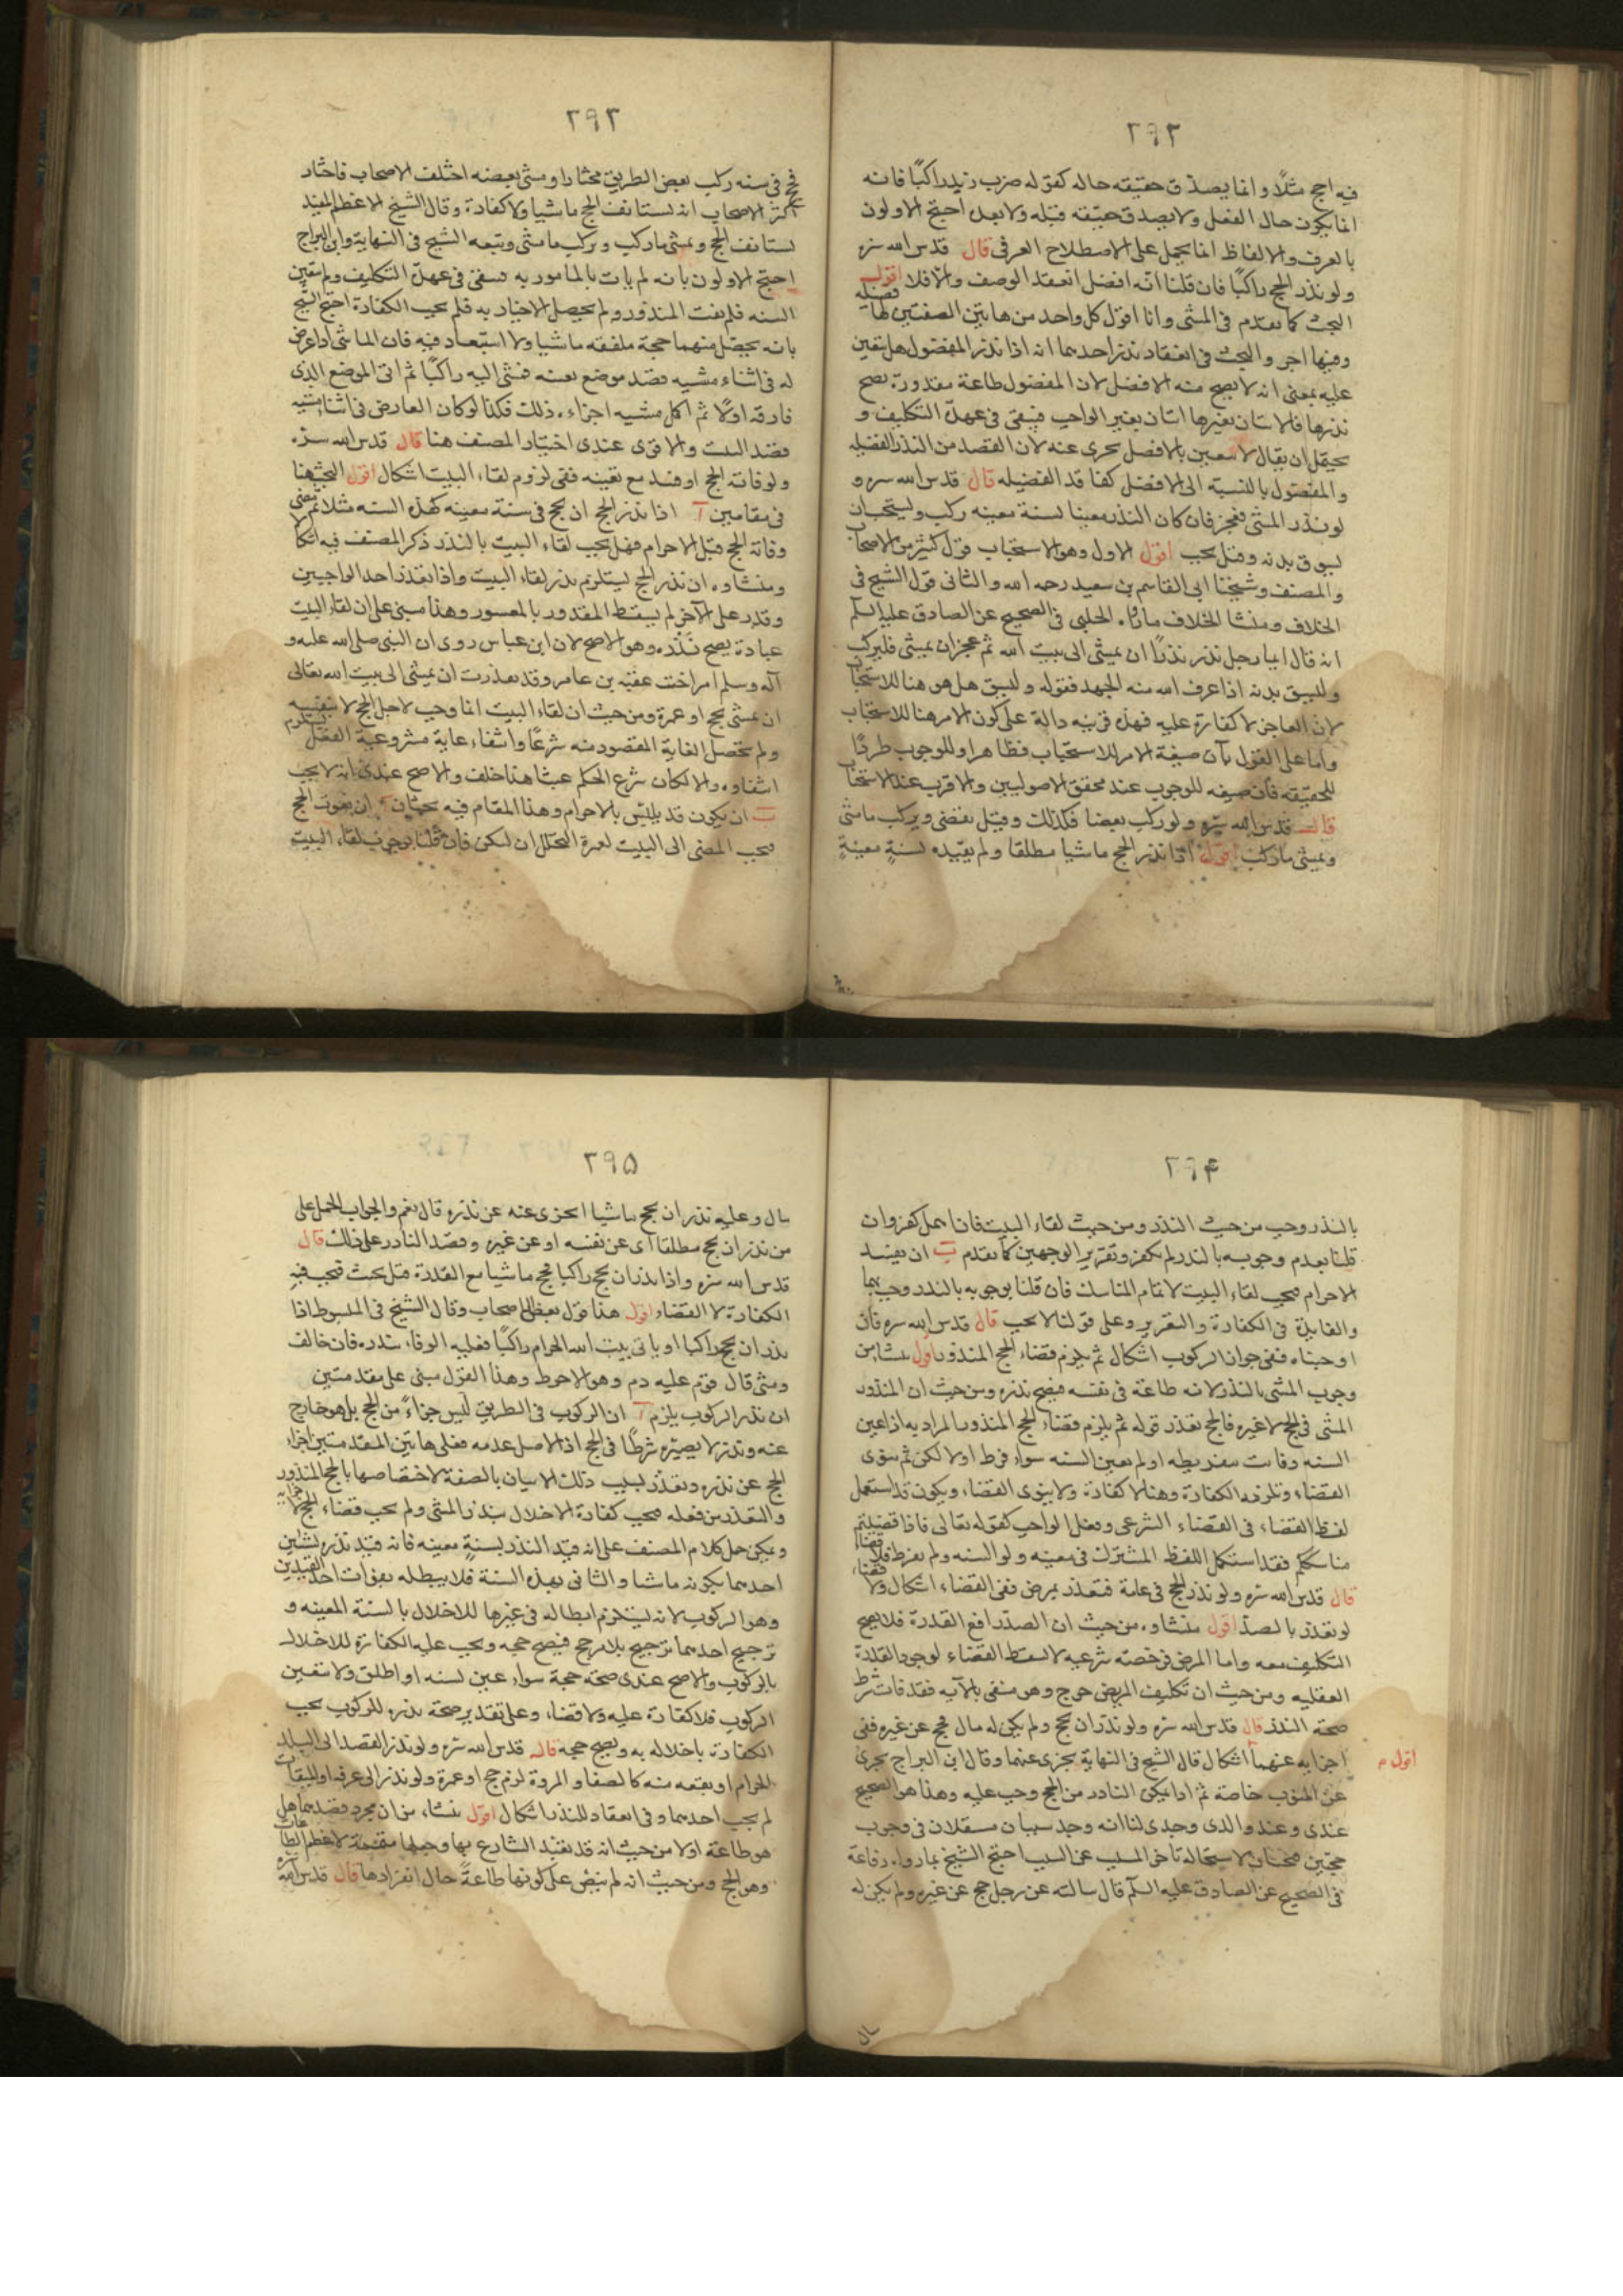 ٢٩٢
فيه احج مثلًا وانما يصدق حقيقته حاله كقوله ضرب زيد راكبًا فانه
انما يكون حال الفعل ولا يصدق حقيقه قبله ولا بعده احتج الاولون
بالعرف والالفاظ انما يحمل على الاصطلاح العرفى قال قدس الله سره
ولو نذر الحج راكبًا فان قلنا انه افضل انعقد الوصف والا فلا اقول
البحث كما تقدم فى المشى وانا اقول كل واحد من هاتين الصفتين لها فضيلة
وفيها اجر والبحث فى انعقاد نذر احدهما انه اذا نذر المفضول هل يتعين
عليه بمعنى انه لا يصح منه الافضل لان المفضول طاعة مقدورة يصح
نذرها فالاتيان بغيرها اتيان بغير الواجب فيبقى فى عهدة التكليف و
يحتمل ان يقال لا يتعين بالافضل يجرى عنه لان القصد من النذر الفضيله
والمفضول بالنسبة الى الافضل كفا قد الفضيله قال قدس الله سره و
لو نذر المشى فعجز فان كان النذر معينا لسنة معينه ركب ويستحب ان
يسوق بدنه وقيل يجب اقول الاول وهو الاستحباب قول كثير من الاصحاب
والمصنف وشيخنا ابى القاسم بن سعيد رحمه الله والثانى قول الشيخ فى
الخلاف ومنشا الخلاف ما رواه الحلبى فى الصحيح عن الصادق عليه السلم
انه قال ايما رجل نذر نذرًا ان يمشى الى بيت الله ثم عجز ان يمشى فليركب
وليسق بدنه اذا عرف الله منه الجهد فقوله وليسق هل هو هنا للاستحباب
لان العاجز لا كفارة عليه فهذه قرينه دالة على كون الامر هنا للاستحباب
واما على القول بان صيغة الامر للاستحباب فظاهر او للوجوب طردًا
للحقيقه فان صيغه للوجوب عند محقق الاصوليين والاقرب عندى الاستحباب
قال قدس الله سره ولو ركب بعضا فكذلك وقيل يقضى ويركب ما مشى
ويمشى ما ركب اقول اذا نذر الحج ماشيا مطلقا ولم يقيده لسنةٍ معينةٍ
٢٩٣
فحج فى سنه ركب بعض الطريق مختارا ومشى بعضه اختلف الاصحاب فاختار
اكثر الاصحاب انه يستانف الحج ماشيا ولا كفارة وقال الشيخ الاعظم المفيد
يستانف الحج ويمشى ما ركب ويركب ما مشى وتبعه الشيخ فى النهاية وابن البراج
احتج الاولون بانه لم يات بالمامور به فيبقى فى عهدة التكليف ولم يتعين
السنه فلم يفت المنذور ولم يحصل الاخبار به فلم يجب الكفارة احتج الشيخ
بانه يحصل منهما حجة ملفقه ماشيا ولا استبعاد فيه فان الماشى اذا عرض
له فى اثناء مشيه قصد موضع بعينه فمشى اليه راكبًا ثم اتى الموضع الذى
فارقه اولًا ثم اكمل مشيه اجزاءه ذلك فكذا لو كان العارض فى اثناء مشيه
قصد البيت والاقوى عندى اختيار المصنف هنا قال قدس الله سره
ولو فاته الحج او فسد مع تعينه ففى لزوم لقاء البيت اشكال اقول البحث هنا
فى مقامين آ اذا نذر الحج ان يحج فى سنة معينه كهذه السنه مثلا ثم مضى
وفاته الحج قبل الاحرام فهل يجب لقاء البيت بالنذر ذكر المصنف فيه اشكالا
ومنشاوه ان نذر الحج يستلزم نذر لقاء البيت واذا تعذر احد الواجبين
وقدر على الآخر لم يسقط المقدور بالمعسور وهذا مبنى على ان لقاء البيت
عبادة يصح نذره وهو الاصح لان ابن عباس روى ان النبى صلى الله عليه و
آله وسلم امر اخت عقبه بن عامر وقد نذرت ان يمشى الى بيت الله تعالى
ان يمشى بحج او عمرة ومن حيث ان لقاء البيت انما وجب لاجل الحج لا بنفسه
ولم تحصل الغاية المقصود منه شرعًا وانتفاء غاية مشروعية الفعل يستلزم
انتفاوه والا لكان شرع الحكم عبثا هذا خلف والاصح عندى انه لا يجب
ب ان يكون قد تلبس بالاحرام وهذا المقام فيه بحثان آ ان يفوت الحج
فيجب المضى الى البيت لعمرة التحلل ان امكن فان قلنا بوجوب لقاء البيت
٢٩٤
بالنذر وجب من حيث النذر ومن حيث لقاء البيت فان اهمل كفر وان
قلنا بعدم وجوبه بالنذر لم يكفر وتقرير الوجهين كما تقدم ب ان يفسد
الاحرام فيجب لقاء البيت لاتمام المناسك فان قلنا بوجوبه بالنذر وجب بهما
والفايدة فى الكفارة والتقرير وعلى قولنا لا يجب قال قدس الله سره فان
اوجبناه ففى جواز الركوب اشكال ثم يلزم قضاء الحج المنذور اقول ينشا من
وجوب المشى بالنذر لانه طاعة فى نفسه فيصح نذره ومن حيث ان المنذور
المشى فى الحج لا غيره فالحج تعذر قوله ثم يلزم قضاء الحج المنذور المراد به اذا عين
السنه وفاتت بتفريطه او لم يعين السنه سواء فرط او لا لكن ثم ينوى
القضاء وتلزمه الكفارة وهنا لا كفارة ولا ينوى القضاء ويكون قد استعمل
لفظ القضاء فى القضاء الشرعى وفعل الواجب كقوله تعالى فاذا قضيتم
مناسككم فقد استعمل اللفظ المشترك فى معينه ولو السنه ولم يفرط فلا قضاء
قال قدس الله سره ولو نذر الحج فى عامه فتعذر بمرض ففى القضاء اشكال ولا قضاء
لو تعذر بالصد اقول منشاوه من حيث ان الصد رافع القدرة فلا يصح
التكليف معه واما المرض فرخصته شرعيه لا يسقط القضاء لوجود القدرة
العقليه ومن حيث ان تكليف المريض حرج وهو منفى بالآيه فقد فات شرط
صحة النذر قال قدس الله سره ولو نذر ان يحج ولم يكن له مال فحج عن غيره ففى
اجزايه عنهما اشكال قال الشيخ فى النهاية يجزى عنهما وقال ابن البراج يجزى
اقول م
عن المنوب خاصة ثم اذا يمكن الناذر من الحج وجب عليه وهذا هو الصحيح
عندى وعند والدى وجدى لنا انه وجد سببان مستقلان فى وجوب
حجتين فتجبان لاستحالة تاخر المسبب عن السبب احتج الشيخ بما رواه رفاعة
فى الصحيح عن الصادق عليه السلم قال سالته عن رجل حج عن غيره ولم يكن له
مال
٢٩٥
مال وعليه نذر ان يحج ماشيا ايجزى عنه عن نذره قال نعم والجواب الحمل على
من نذر ان يحج مطلقا اى عن نفسه او عن غيره وقصد الناذر على ذلك قال
قدس الله سره واذا نذر ان يحج راكبا فحج ماشيا مع القدرة قيل يحنث فيجب فيه
الكفارة لا القضاء اقول هذا قول بعض الاصحاب وقال الشيخ فى المبسوط اذا
نذر ان يحج راكبا او ياتى بيت الله الحرام راكبًا فعليه الوفاء بنذره فان خالف
ومشى قال قوم عليه دم وهو الاحوط وهذا القول مبنى على مقدمتين
ان نذر الركوب يلزم آ ان الركوب فى الطريق ليس جزاءً من الحج بل هو خارج
عنه ونذره لا يصيره شرطًا فى الحج اذ الاصل عدمه فعلى هاتين المقدمتين اجزاء
الحج عن نذره وتعذر بسبب ذلك الاتيان بالصفة لاختصاصها بالحج المنذور
والتعذر من فعله فيجب كفارة الاخلال بنذر المشى ولم يجب قضاء الحج
ويمكن حمل كلام المصنف على انه قيد النذر بسنةٍ معينه فانه قيد نذره بشيئين
احدهما بكونه ماشيا والثانى بهذه السنة فلا يبطله بفوات احد القيدين
وهو الركوب لانه يستلزم ابطاله فى غيرها للاخلال بالسنة المعينه و
ترجيح احدهما ترجيح بلا مرجح فيصح حجه ويجب عليه الكفارة للاخلال
بالركوب والاصح عندى صحة حجة سواء عين لسنه او اطلق ولا يتعين
الركوب فلا كفارة عليه ولا قضاء وعلى تقدير صحة نذره للركوب يجب
الكفارة باخلاله به ويصح حجه قال قدس الله سره ولو نذر القصد الى البلد
الحرام او بقعه منه كالصفا والمروة لزم حج او عمرة ولو نذر الى عرفه او الميقات
لم يجب احدهما وفى انعقاد النذر اشكال اقول ينشاء من ان مجرد قصدهما هل
هو طاعة او لا من حيث انه قد تعبد الشارع بها وجعلها مقدمة لاعظم الطاعات
وهو الحج ومن حيث انه لم ينص على كونها طاعةً حال انفرادها قال قدس الله سره